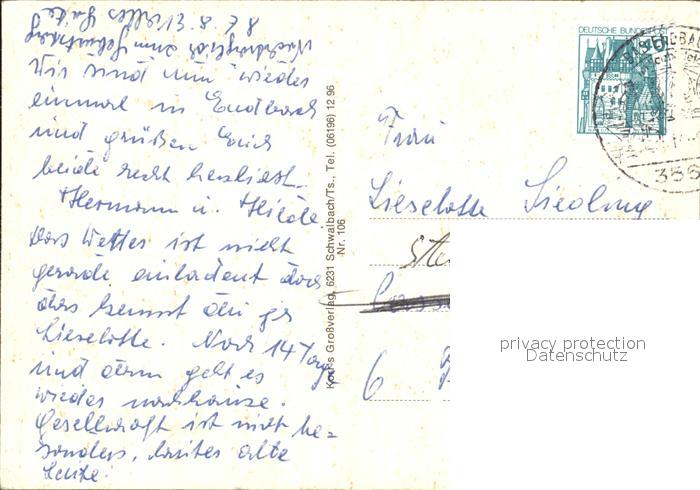 8 z. 8. Alles Gute
Nachträglich zum Geburtstag
Wir sind nun wieder
einmal in Endbach
und grüßen Euch
beide recht herzlichst.
Hermann u. Hilde
Das Wetter ist nicht
gerade einladent doch
das kennst Du ja
Lieselotte. Noch 14 Tage
und dann geht es
wieder nachhause.
Gesellschaft ist nicht be=
sonders, lauter alte
Leute.
Koch's Großverlag, 6231 Schwalbach/Ts., Tel. (06196) 12 96
Nr. 106
DEUTSCHE BUNDES
356
Frau
Lieselotte Siedling
Ste
6
privacy protection
Datenschutz